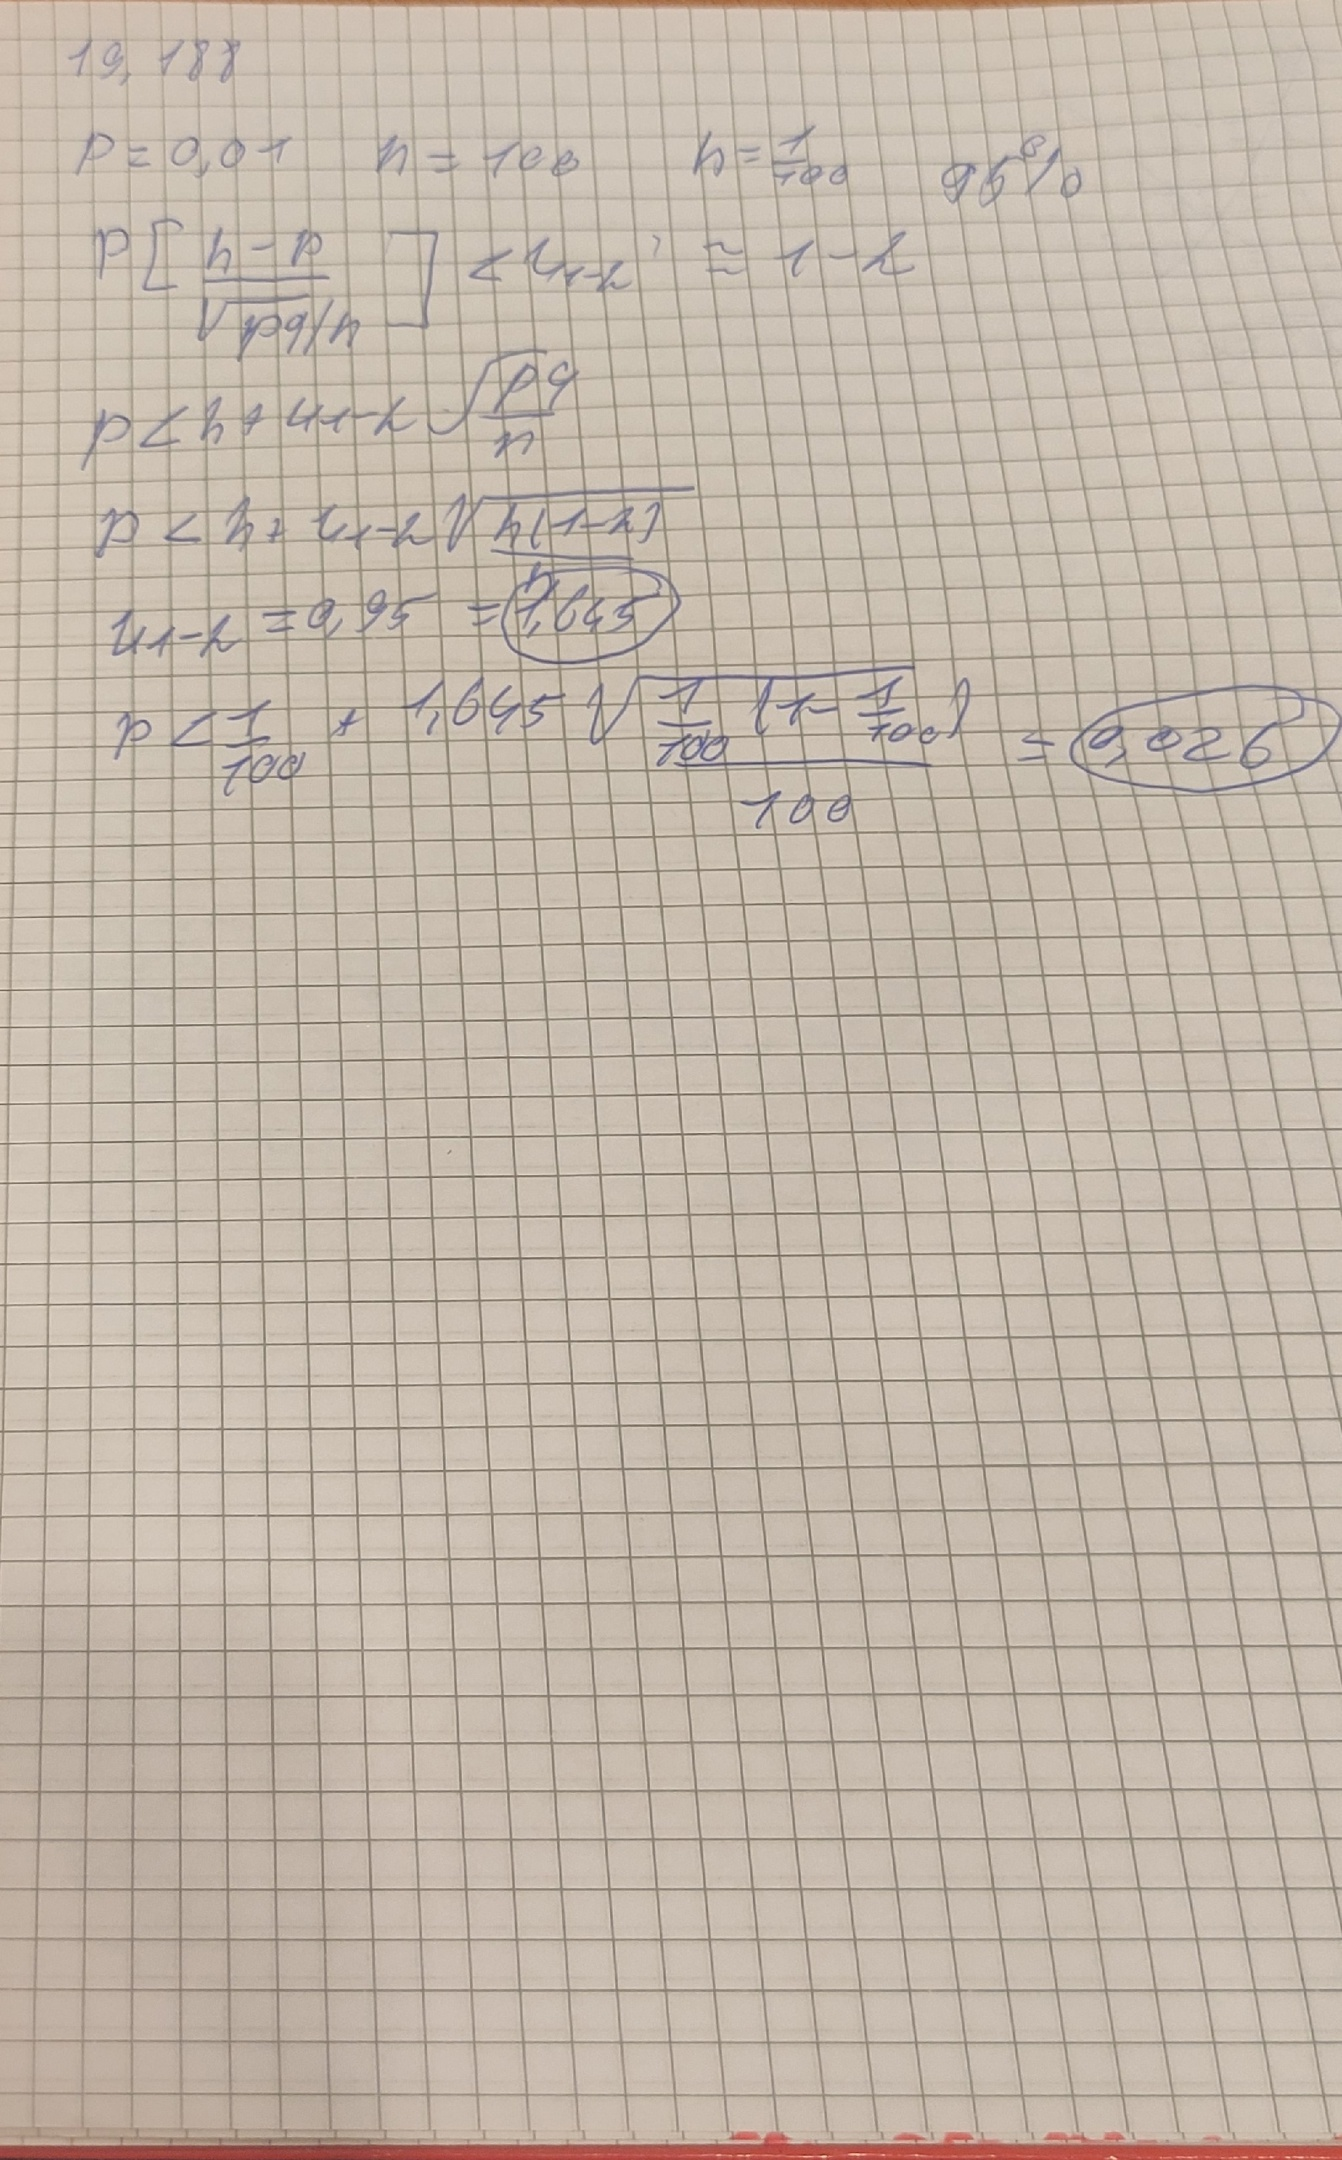 19,188
p = 0,01 n = 100 h = 1/100 95%
P[(h-p)/√(pq/n)] < u1-α, ≈ 1-α
p < h + u1-α √(pq/n)
p < h + u1-α √(h(1-h)/n)
u1-α = 0,95 = 1,645
p < 1/100 + 1,645 √(1/100 (1 - 1/100)/100) = 0,026